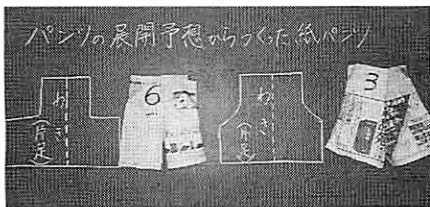 パンツの展開予想からつくった紙パンツ
わき
(片足)
6
わき
(片足)
3